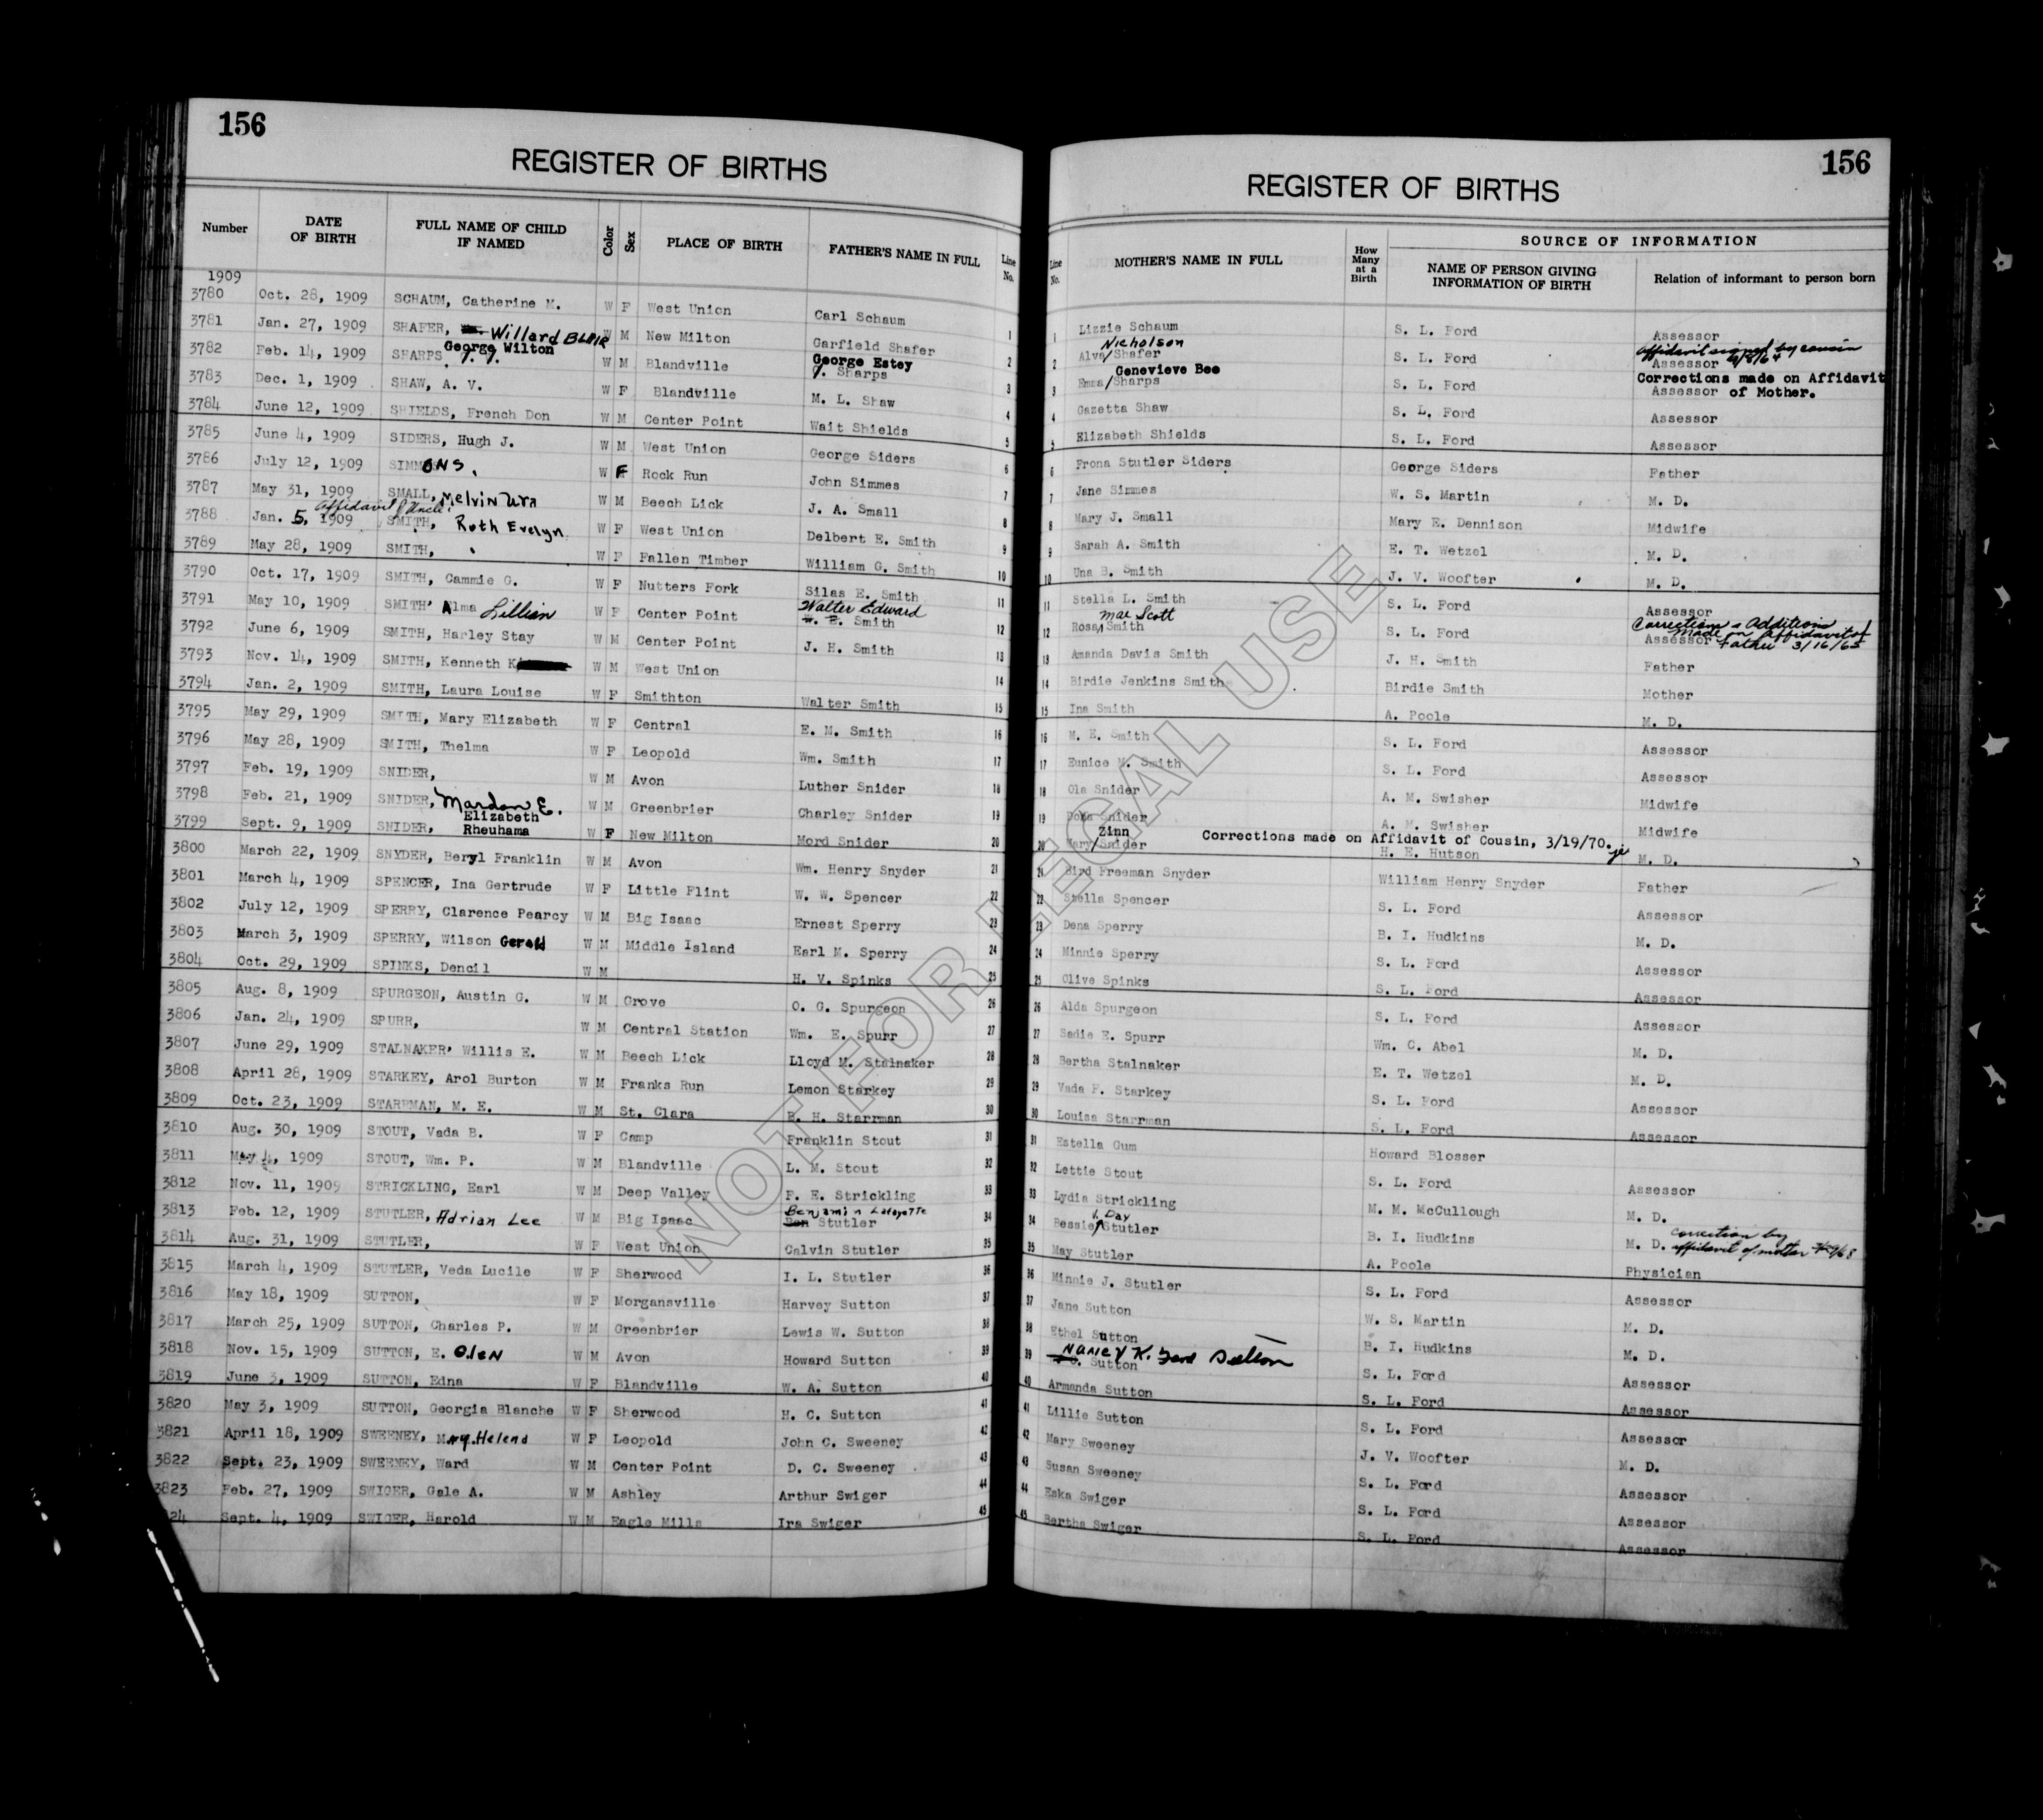 156
REGISTER OF BIRTHS
Number DATE OF BIRTH FULL NAME OF CHILD IF NAMED Color Sex PLACE OF BIRTH FATHER'S NAME IN FULL Line No.
1909
3780 Oct. 28, 1909 SCHAUM, Catherine M. W F West Union Carl Schaum 1
3781 Jan. 27, 1909 SHAFER, Willard BLAIR W M New Milton Garfield Shafer 2
George Wilton George Estey
3782 Feb. 14, 1909 SHARPS W M Blandville Sharps 3
3783 Dec. 1, 1909 SHAW, A. V. W F Blandville M. L. Shaw 4
3784 June 12, 1909 SHIELDS, French Don W M Center Point Wait Shields 5
3785 June 4, 1909 SIDERS, Hugh J. W M West Union George Siders 6
3786 July 12, 1909 SIMMONS, W F Rock Run John Simmes 7
3787 May 31, 1909 SMALL, Melvin Ura W M Beech Lick J. A. Small 8
Affidavit of Uncle
3788 Jan. 5, 1909 SMITH, Ruth Evelyn W F West Union Delbert E. Smith 9
3789 May 28, 1909 SMITH, W F Fallen Timber William G. Smith 10
3790 Oct. 17, 1909 SMITH, Cammie G. W F Nutters Fork Silas E. Smith 11
Walter Edward
3791 May 10, 1909 SMITH, Alma Lillian W F Center Point W. E. Smith 12
3792 June 6, 1909 SMITH, Harley Stay W M Center Point J. H. Smith 13
3793 Nov. 14, 1909 SMITH, Kenneth K W M West Union 14
3794 Jan. 2, 1909 SMITH, Laura Louise W F Smithton Walter Smith 15
3795 May 29, 1909 SMITH, Mary Elizabeth W F Central E. M. Smith 16
3796 May 28, 1909 SMITH, Thelma W F Leopold Wm. Smith 17
3797 Feb. 19, 1909 SNIDER, W M Avon Luther Snider 18
3798 Feb. 21, 1909 SNIDER, Mardon E. W M Greenbrier Charley Snider 19
Elizabeth
3799 Sept. 9, 1909 SNIDER, Rheuhama W F New Milton Mord Snider 20
3800 March 22, 1909 SNYDER, Beryl Franklin W M Avon Wm. Henry Snyder 21
3801 March 4, 1909 SPENCER, Ina Gertrude W F Little Flint W. W. Spencer 22
3802 July 12, 1909 SPERRY, Clarence Pearcy W M Big Isaac Ernest Sperry 23
3803 March 3, 1909 SPERRY, Wilson Gerald W M Middle Island Earl M. Sperry 24
3804 Oct. 29, 1909 SPINKS, Dencil W M H. V. Spinks 25
3805 Aug. 8, 1909 SPURGEON, Austin G. W M Grove O. G. Spurgeon 26
3806 Jan. 24, 1909 SPURR, W M Central Station Wm. E. Spurr 27
3807 June 29, 1909 STALNAKER, Willis E. W M Beech Lick Lloyd M. Stalnaker 28
3808 April 28, 1909 STARKEY, Arol Burton W M Franks Run Lemon Starkey 29
3809 Oct. 23, 1909 STARRMAN, M. E. W M St. Clara B. H. Starrman 30
3810 Aug. 30, 1909 STOUT, Vada B. W F Camp Franklin Stout 31
3811 May 4, 1909 STOUT, Wm. P. W M Blandville L. M. Stout 32
3812 Nov. 11, 1909 STRICKLING, Earl W M Deep Valley F. E. Strickling 33
Benjamin Lafayette
3813 Feb. 12, 1909 STUTLER, Adrian Lee W M Big Isaac Ben Stutler 34
3814 Aug. 31, 1909 STUTLER, W F West Union Calvin Stutler 35
3815 March 4, 1909 STUTLER, Veda Lucile W F Sherwood I. L. Stutler 36
3816 May 18, 1909 SUTTON, W F Morgansville Harvey Sutton 37
3817 March 25, 1909 SUTTON, Charles P. W M Greenbrier Lewis W. Sutton 38
3818 Nov. 15, 1909 SUTTON, E. Olen W M Avon Howard Sutton 39
3819 June 3, 1909 SUTTON, Edna W F Blandville W. A. Sutton 40
3820 May 3, 1909 SUTTON, Georgia Blanche W F Sherwood H. C. Sutton 41
3821 April 18, 1909 SWEENEY, Mary Helena W F Leopold John C. Sweeney 42
3822 Sept. 23, 1909 SWEENEY, Ward W M Center Point D. C. Sweeney 43
3823 Feb. 27, 1909 SWIGER, Gale A. W M Ashley Arthur Swiger 44
24 Sept. 4, 1909 SWIGER, Harold W M Eagle Mills Ira Swiger 45
156
REGISTER OF BIRTHS
Line No. MOTHER'S NAME IN FULL How Many at a Birth SOURCE OF INFORMATION
NAME OF PERSON GIVING INFORMATION OF BIRTH Relation of informant to person born
1 Lizzie Schaum S. L. Ford Assessor
Nicholson Affidavit signed by cousin
2 Alva/Shafer S. L. Ford Assessor
Genevieve Bee Corrections made on Affidavit
3 Emma/Sharps S. L. Ford Assessor of Mother.
4 Gazetta Shaw S. L. Ford Assessor
5 Elizabeth Shields S. L. Ford Assessor
6 Frona Stutler Siders George Siders Father
7 Jane Simmes W. S. Martin M. D.
8 Mary J. Small Mary E. Dennison Midwife
9 Sarah A. Smith E. T. Wetzel M. D.
10 Una B. Smith J. V. Woofter M. D.
11 Stella L. Smith S. L. Ford Assessor
Mae Scott Corrections & Additions made on Affidavit of
12 Rosa/Smith S. L. Ford Assessor Father 3/16/65
13 Amanda Davis Smith J. H. Smith Father
14 Birdie Jenkins Smith Birdie Smith Mother
15 Ina Smith A. Poole M. D.
16 M. E. Smith S. L. Ford Assessor
17 Eunice M. Smith S. L. Ford Assessor
18 Ola Snider A. M. Swisher Midwife
19 Dona Snider A. M. Swisher Midwife
Zinn Corrections made on Affidavit of Cousin, 3/19/70.
20 Mary/Snider H. E. Hutson M. D.
21 Bird Freeman Snyder William Henry Snyder Father
22 Stella Spencer S. L. Ford Assessor
23 Dena Sperry B. I. Hudkins M. D.
24 Minnie Sperry S. L. Ford Assessor
25 Olive Spinks S. L. Ford Assessor
26 Alda Spurgeon S. L. Ford Assessor
27 Sadie E. Spurr Wm. C. Abel M. D.
28 Bertha Stalnaker E. T. Wetzel M. D.
29 Vada F. Starkey S. L. Ford Assessor
30 Louisa Starrman S. L. Ford Assessor
31 Estella Gum Howard Blosser
32 Lettie Stout S. L. Ford Assessor
33 Lydia Strickling M. M. McCullough M. D.
Day correction by
34 Bessie/Stutler B. I. Hudkins M. D. affidavit of mother
35 May Stutler A. Poole Physician
36 Minnie J. Stutler S. L. Ford Assessor
37 Jane Sutton W. S. Martin M. D.
38 Ethel Sutton B. I. Hudkins M. D.
Nancy K. Sutton
39 Sutton S. L. Ford Assessor
40 Armanda Sutton S. L. Ford Assessor
41 Lillie Sutton S. L. Ford Assessor
42 Mary Sweeney J. V. Woofter M. D.
43 Susan Sweeney S. L. Ford Assessor
44 Eska Swiger S. L. Ford Assessor
45 Bertha Swiger S. L. Ford Assessor
NOT FOR LEGAL USE